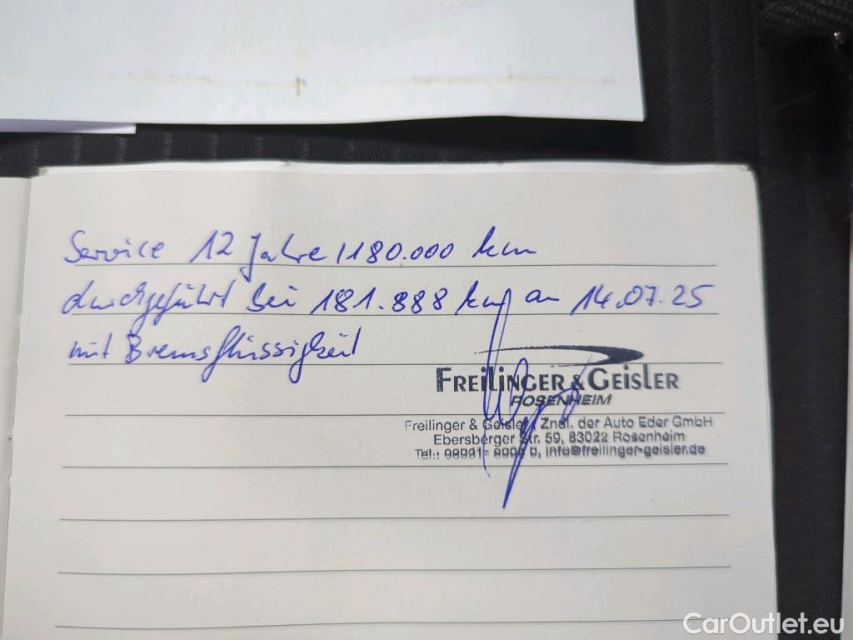 Service 12 Jahre / 180.000 km
durchgeführt bei 181.888 km an 14.07.25
mit Bremsflüssigkeit
FREILINGER & GEISLER
ROSENHEIM
Freilinger & Geisler, Zndl. der Auto Eder GmbH
Ebersberger Str. 59, 83022 Rosenheim
Tel.: info@freilinger-geisler.de
CarOutlet.eu